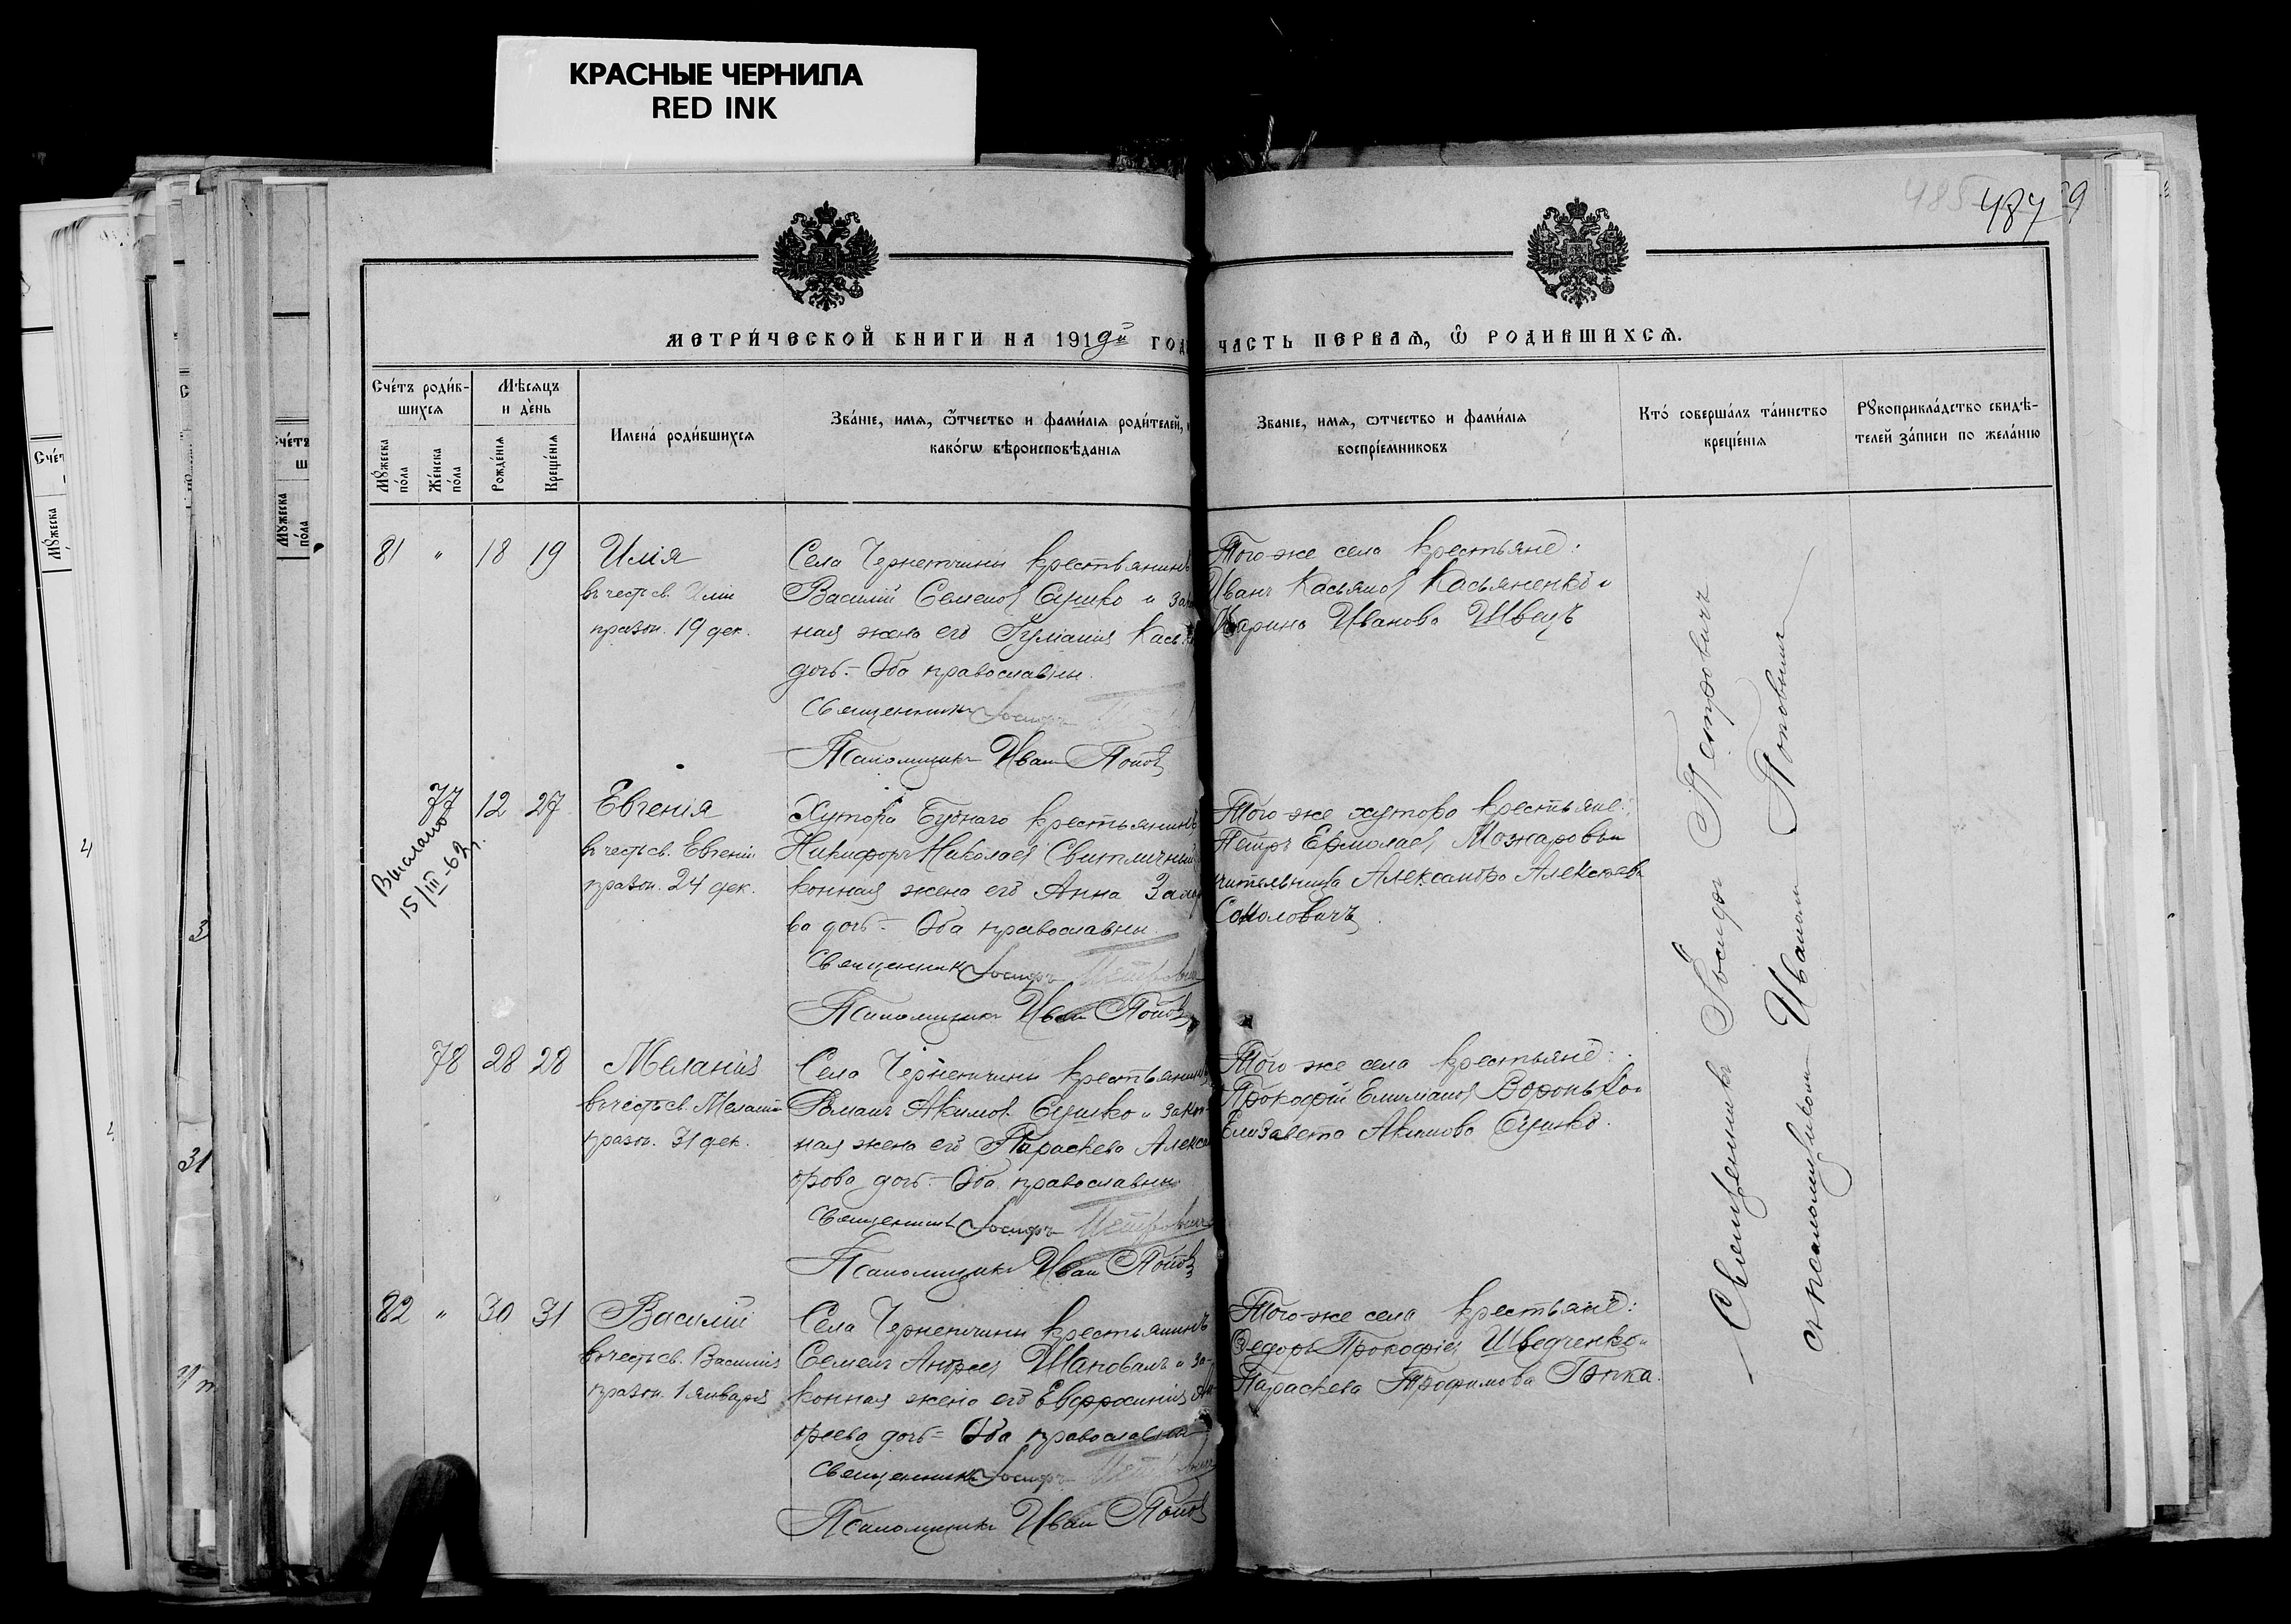 КРАСНЫЕ ЧЕРНИЛА
RED INK
487
МЕТРИ́ЧЕСКОЙ КНИГИ НА 1919й ГОД
ЧАСТЬ ПЕРВАЯ, Ѿ РОДИВШИХСѦ.
Сче́тъ роди́в-
шихсѧ
Мꙋ́жеска по́ла
Же́нска по́ла
Мѣ́сѧцъ
и де́нь
Рожде́нїѧ
Креще́нїѧ
Имена́ роди́вшихсѧ
Зва́нїе, имѧ, ѻ҆́тчество и фами́лїѧ роди́телей,
како́гѡ вѣроисповѣ́данїѧ
Зва́нїе, имѧ, ѻтчество и фами́лїѧ
воспрїе́мниковъ
Кто́ соверша́лъ та́инство
креще́нїѧ
Рꙋкоприкла́дство свидѣ́-
телей за́писи по жела́нїю
81 " 18 19
Илія
въ честь св. Иліи
празн. 19 дек.
Села Чернетчины крестьянинъ
Василій Семенов Сушко и
ная жена его
дочь - Оба православны.
Священникъ Іосифъ
Псаломщикъ Иван Попов
Того-же села крестьяне:
Иванъ Касьянов Касьяненко и
Марина Иванова Швецъ
77 12 27
Выслано
15/III-62 г.
Евгенія
въ честь св. Евгеніи
празн. 24 дек.
Хутора Буднаго крестьянинъ
Никифоръ Николаев Свитличный
конная жена его Анна
ва дочь - Оба православны.
Священникъ Іосифъ Петрович
Псаломщикъ Иван Попов
Того-же хутора крестьяне:
Петръ Ермолаев Можаровъ и
учительница Александра Алексеева
Соколовичъ
78 28 28
Меланія
въ честь св. Меланіи
празн. 31 дек.
Села Чернетчины крестьянинъ
Романъ Акимов Сушко и закон-
ная жена его Параскева Алексан
дрова дочь - Оба православны
Священникъ Іосифъ Петрович
Псаломщикъ Иван Попов
Того же села крестьяне:
Прокофій Емиліанов Воронько и
Елизавета Акимова Сушко.
82 " 30 31
Василій
въ честь св. Василія
празн. 1 января
Села Чернетчины крестьянинъ
Семенъ Андреев Шаповалъ и за-
конная жена его Евфросинія Ан
дреева дочь - Оба православны
Священникъ Іосифъ Петрович
Псаломщикъ Иван Попов
Того-же села крестьяне:
Федоръ Прокофіев Шведченко и
Параскева Трофимова Гапка.
Священникъ Іосифъ Петровичъ
съ псаломщикомъ Иваномъ Поповымъ